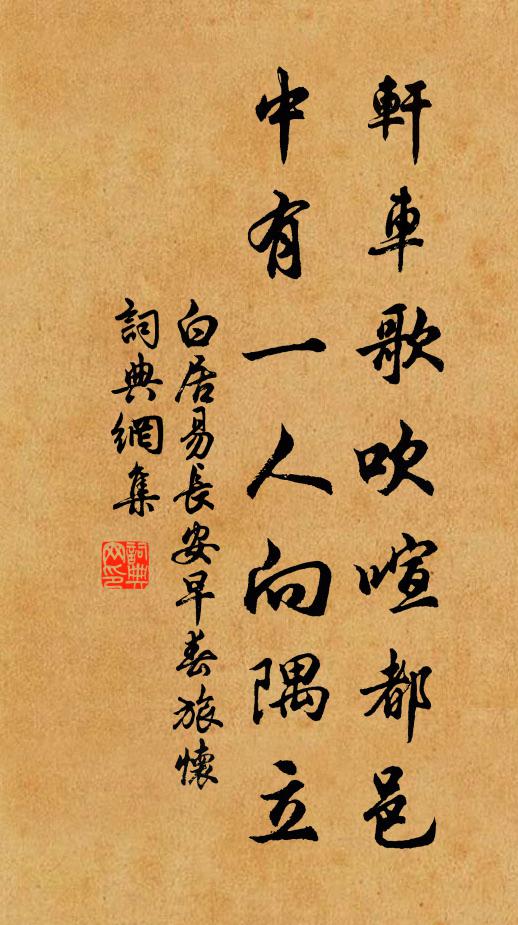 軒車歌吹喧都邑
中有一人向隅立
白居易長安早春旅懷
詞典網集
詞典網印